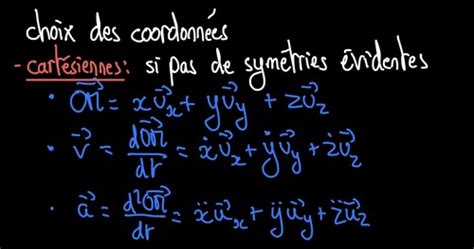 choix des coordonnées
- cartésiennes: si pas de symétries évidentes
• \vec{OM} = x\vec{u}_x + y\vec{u}_y + z\vec{u}_z
• \vec{v} = \frac{d\vec{OM}}{dt} = \dot{x}\vec{u}_x + \dot{y}\vec{u}_y + \dot{z}\vec{u}_z
• \vec{a} = \frac{d^2\vec{OM}}{dt} = \ddot{x}\vec{u}_x + \ddot{y}\vec{u}_y + \ddot{z}\vec{u}_z